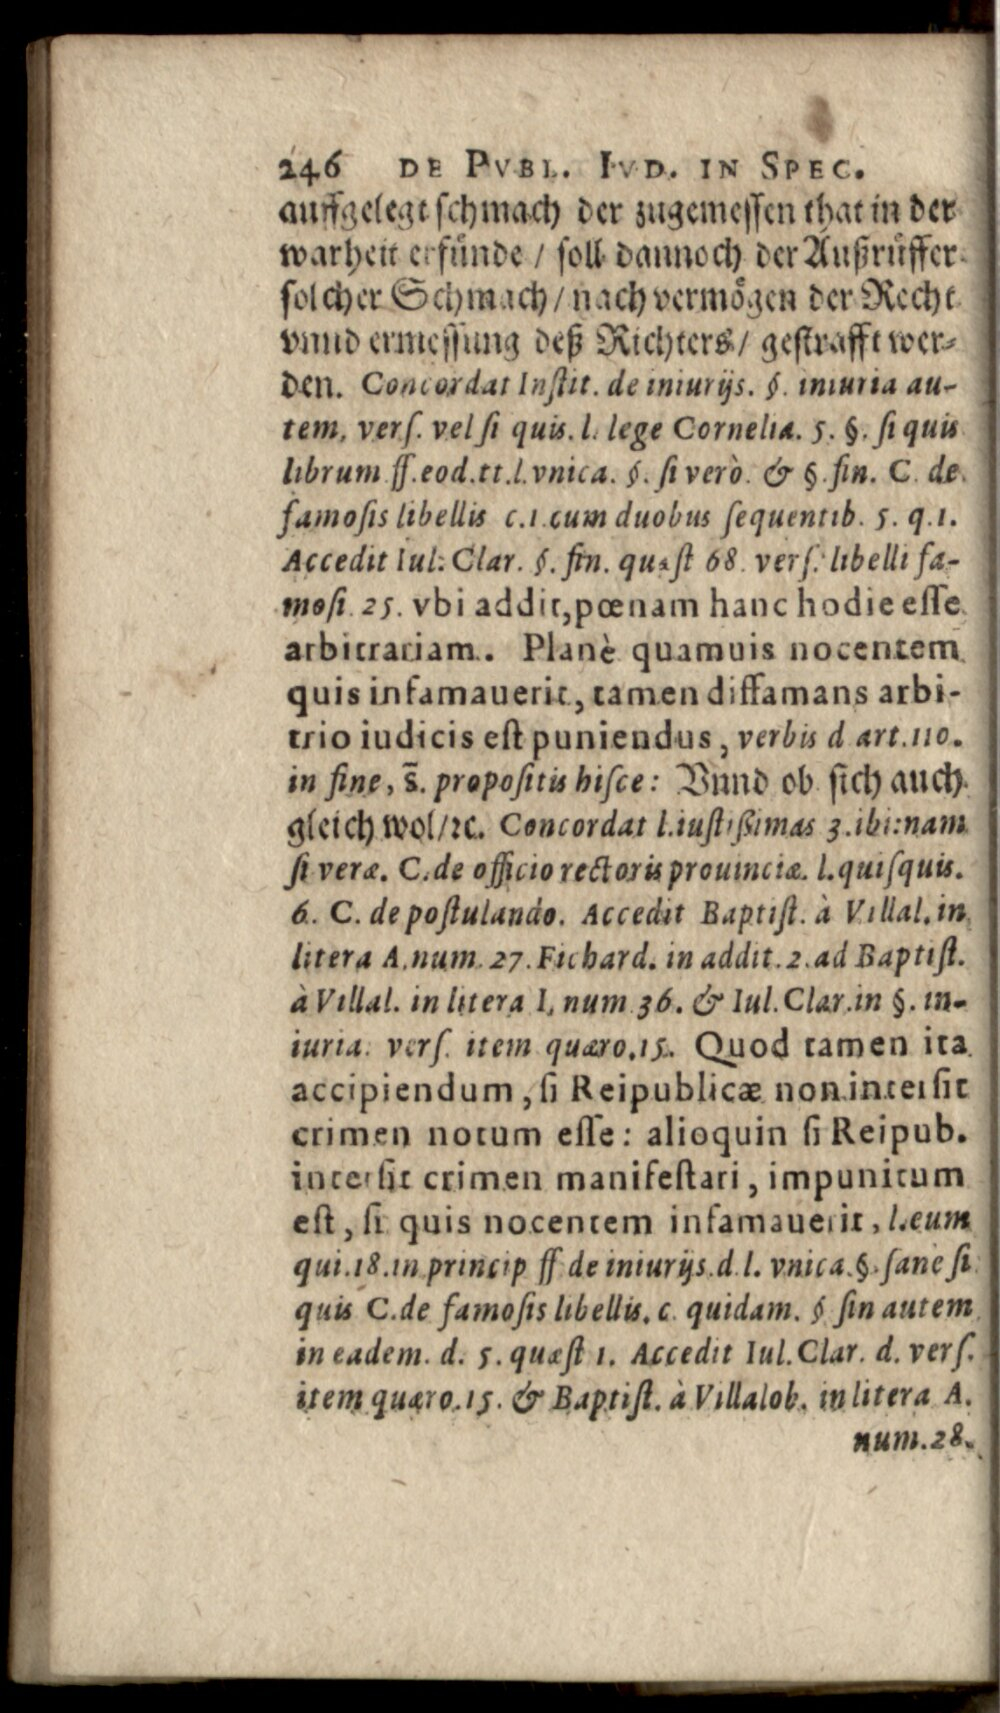 246 DE PVBL. IVD. IN SPEC.
auffgelegt schmach der zugemessen that in der
warheit erfünde / soll dannoch der Außrüffer
solcher Schmach / nach vermögen der Recht
vnnd ermessung deß Richters / gestrafft wer-
den. Concordat Instit. de iniurijs. §. iniuria au-
tem, vers. vel si quis. l. lege Cornelia. 5. §. si quis
librum ff. eod. tt. l. vnica. §. si verò. & §. fin. C. de
famosis libellis c. 1. cum duobus sequentib. 5. q. 1.
Accedit Iul. Clar. §. fin. quæst 68. vers. libelli fa-
mosi. 25. vbi addit, pœnam hanc hodie esse
arbitrariam. Planè quamuis nocentem
quis infamauerit, tamen diffamans arbi-
trio iudicis est puniendus, verbis d art. 110.
in fine, s̄. propositis hisce: Vnnd ob sich auch
gleich wol / ꝛc. Concordat l. iustissimas 3. ibi: nam
si veræ. C. de officio rectoris prouinciæ. l. quisquis.
6. C. de postulando. Accedit Baptist. à Villal. in
litera A. num. 27. Fichard. in addit. 2. ad Baptist.
à Villal. in litera I, num 36. & Iul. Clar. in §. in-
iuria. vers. item quæro. 15. Quod tamen ita
accipiendum, si Reipublicæ non intersit
crimen notum esse: alioquin si Reipub.
intersit crimen manifestari, impunitum
est, si quis nocentem infamauerit, l. eum
qui. 18. in princip ff de iniurijs. d. l. vnica. §. sane si
quis C. de famosis libellis. c. quidam. § sin autem
in eadem. d. 5. quæst 1. Accedit Iul. Clar. d. vers.
item quæro. 15. & Baptist. à Villalob. in litera A.
num. 28.